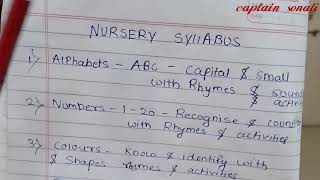 captain_sonali
NURSERY SYLLABUS
1) Alphabets - ABC - Capital & Small
with Rhymes &
& activi
2) Numbers - 1-20 - Recognise &
with Rhymes & activities
3) Colours - Know & identify with
& Shapes & activities